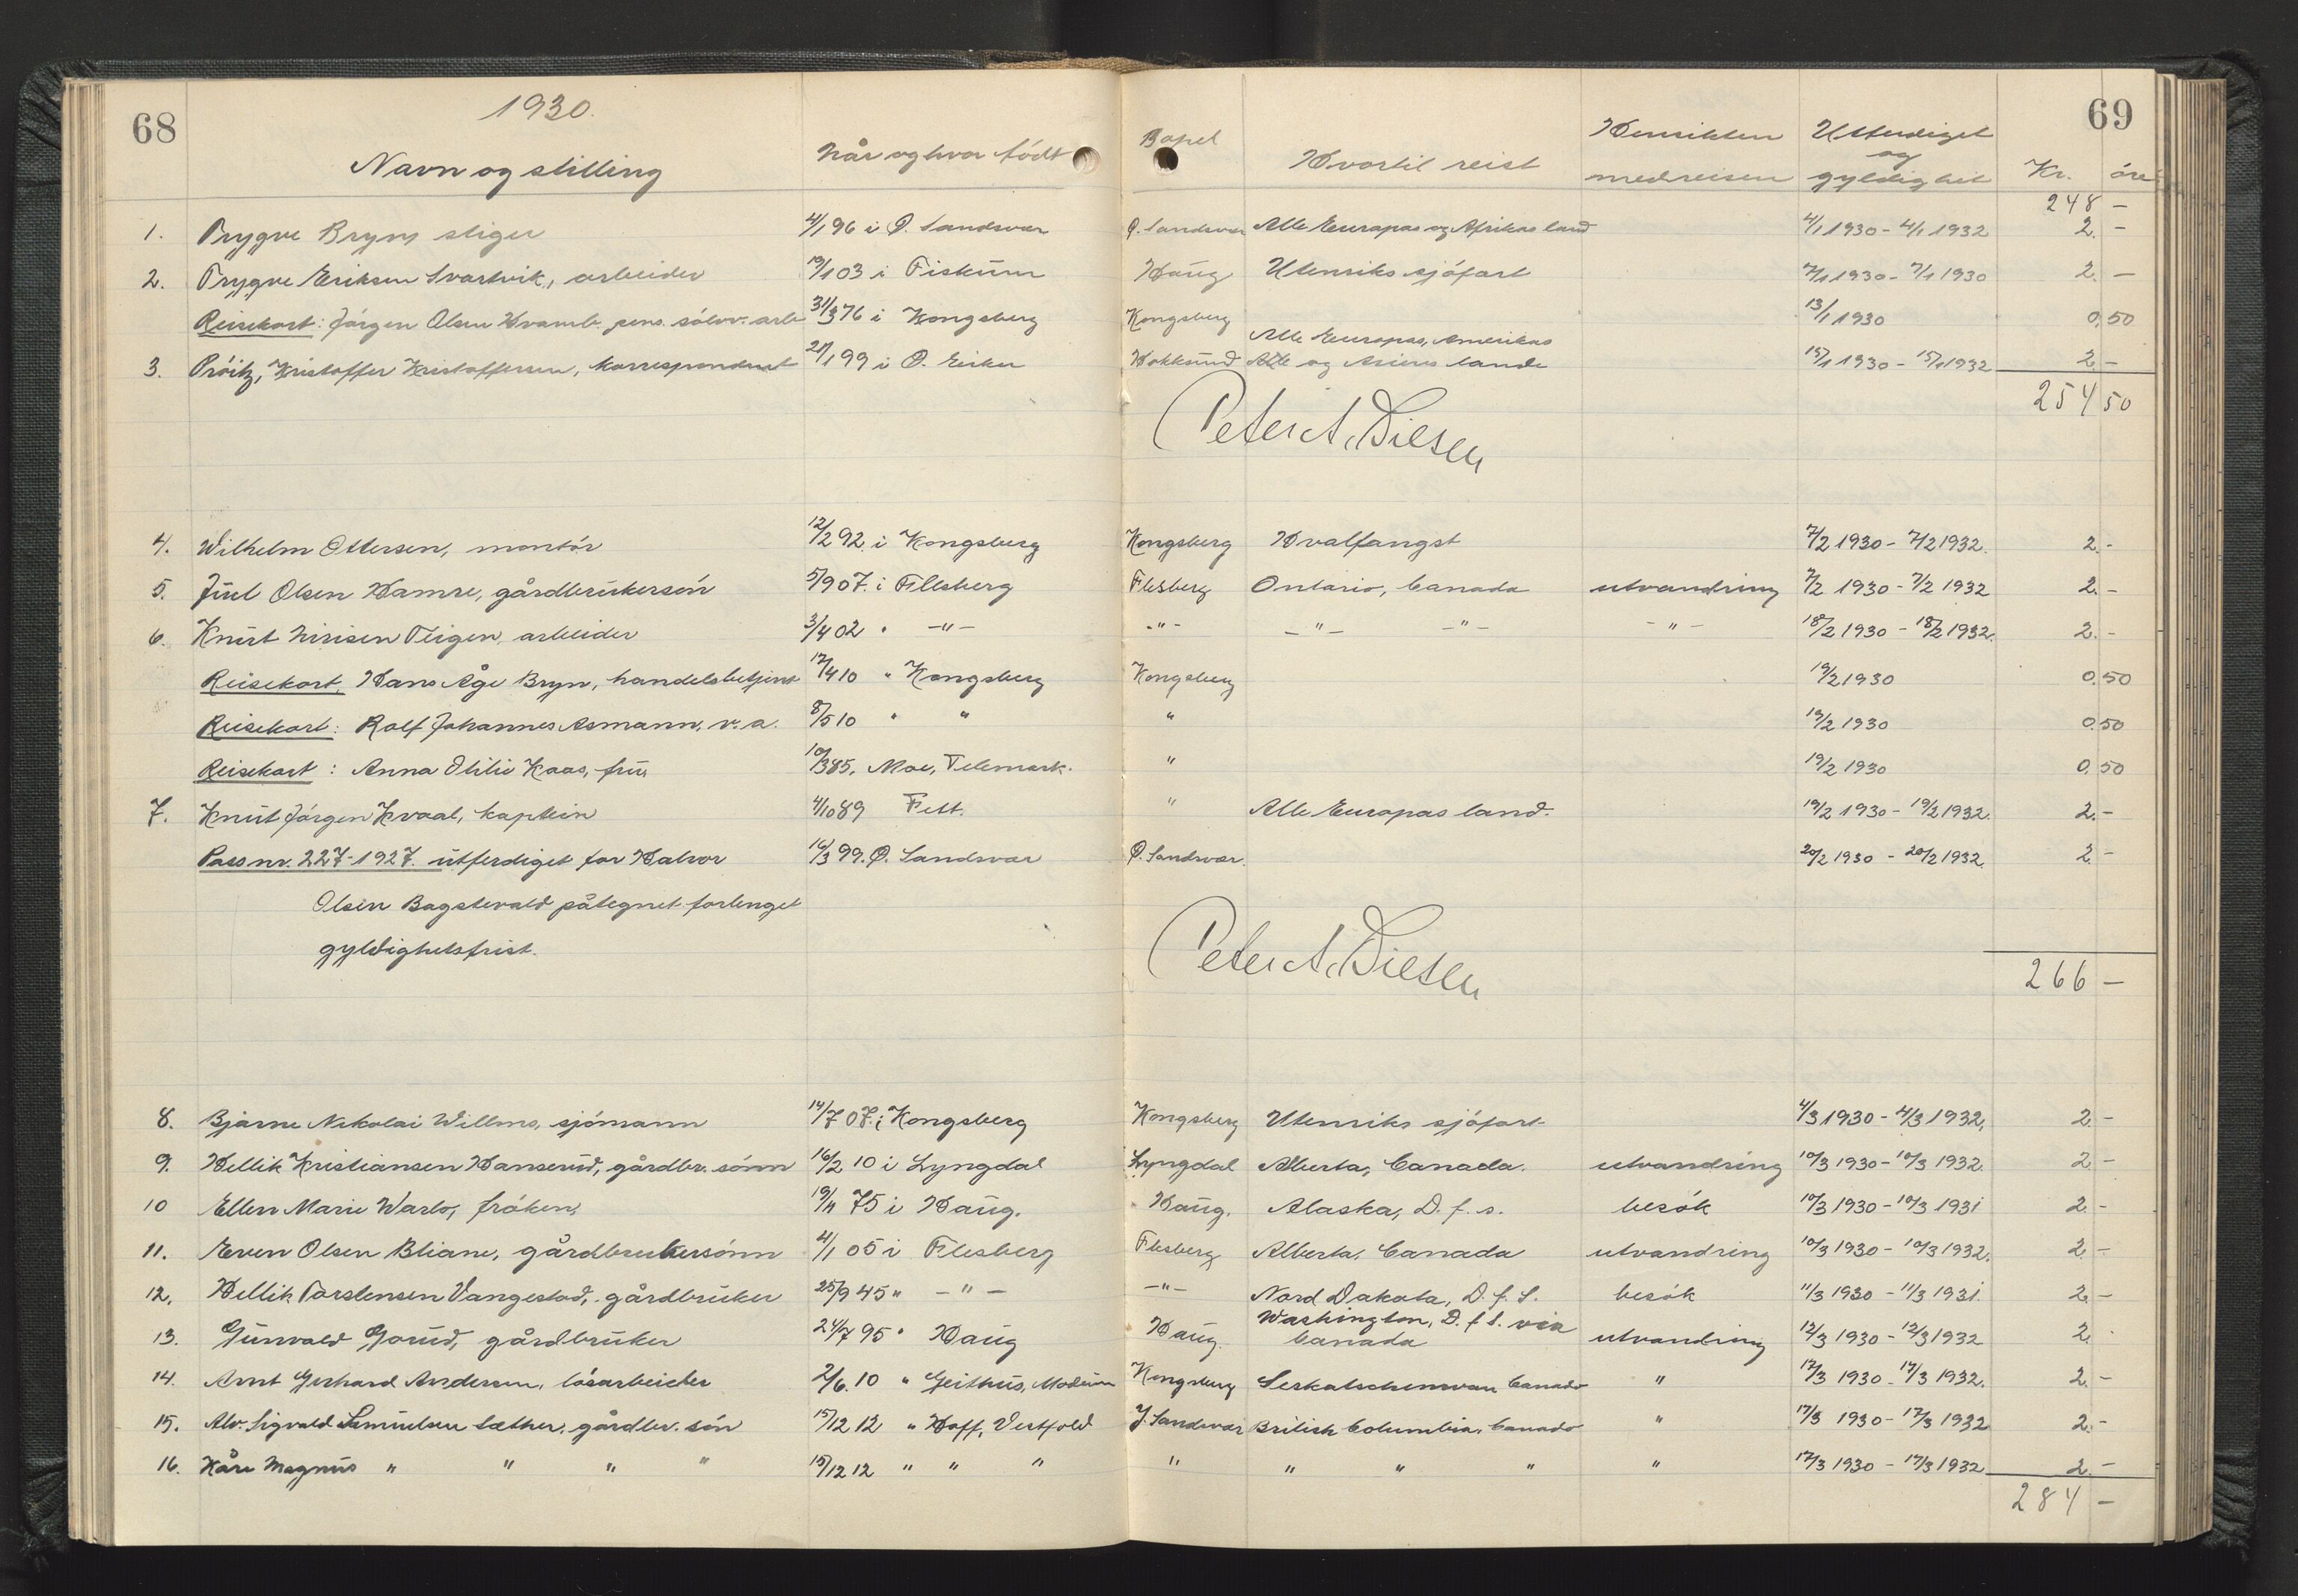 68
1930.
69
Navn og stilling | Når og hvor født | Bopel | Hvortil reist | Hensikten med reisen | Utferdiget og gyldighet | Kr. | öre
248 -
1. Trygve Bryn, stiger | 4/1 96 i Ö. Sandsvær | Ö. Sandsvær | Alle Europas og Afrikas land | 4/1 1930 - 4/1 1932 | 2. -
2. Trygve Eriksen Svartvik, arbeider | 19/1 03 i Fiskum | Haug | Utenriks sjöfart | 7/1 1930 - 7/1 1930 | 2. -
Reisekort: Jörgen Olsen Hvamb. pens. sölvv. arb. | 31/3 76 i Kongsberg | Kongsberg | 13/1 1930 | 0.50
Alle Europas, Amerikas
3. Pröitz, Kristoffer Kristoffersen, korrespondent | 21/1 99 i Ö. Eiker | Hokksund | og Asiens lande | 15/1 1930 - 15/1 1932 | 2. -
254 50
Peter A. Diesen
4. Wilhelm Ottersen, montör | 12/2 92 i Kongsberg | Kongsberg | Hvalfangst | 7/2 1930 - 7/2 1932. | 2. -
5. Juel Olsen Hamre, gårdbrukersön | 5/9 07. i Flesberg | Flesberg | Ontario, Canada | utvandring | 7/2 1930 - 7/2 1932 | 2. -
6. Knut Nirisen Fleigen, arbeider | 3/4 02 " -"- | -"- | -"- -"- | -"- | 18/2 1930 - 18/2 1932. | 2. -
Reisekort, Hans Åge Bryn, handelsbetjent | 17/4 10 " Kongsberg | Kongsberg | 19/2 1930 | 0.50
Reisekort: Rolf Johannes Asmann, v. a. | 8/5 10 " " | " | 19/2 1930 | 0.50
Reisekort: Anna Otilie Kaas, fru | 10/3 85, Moe, Telemark. | " | 19/2 1930 | 0.50
7. Knut Jörgen Kvaal, kaptein | 4/10 89 Fett. | " | Alle Europas land. | 19/2 1930 - 19/2 1932. | 2. -
Pass nr. 227-1927. utferdiget for Halvor | 16/3 99. Ö. Sandsvær | Ö. Sandsvær. | 20/2 1930 - 20/2 1932. | 2. -
Olsen Bagstevold påtegnet forlenget
gyldighetsfrist.
Peter A. Diesen
266 -
8. Bjarne Nikolai Willms, sjömann | 14/7 07. i Kongsberg | Kongsberg | Utenriks sjöfart | 4/3 1930 - 4/3 1932, | 2. -
9. Hellik Kristiansen Hanserud, gårdbr. sönn | 16/2 10 i Lyngdal | Lyngdal | Alberta, Canada. | utvandring | 10/3 1930 - 10/3 1932. | 2 -
10 Ellen Marie Warlo, fröken, | 19/11 75 i Haug. | Haug. | Alaska, D. f. s. | besök | 10/3 1930 - 10/3 1931 | 2. -
11. Even Olsen Bliane, gårdbrukersönn | 4/1 05 i Flesberg | Flesberg | Alberta, Canada | utvandring | 10/3 1930 - 10/3 1932. | 2. -
12. Hellik Torstensen Vangestad, gårdbruker | 25/9 45 " -"- | -"- | Nord Dakota, D. f. S. | besök | 11/3 1930 - 11/3 1931. | 2. -
Washington, D. f. S. via
13. Gunvald Gorud, gårdbruker | 24/7 95 " Haug | Haug. | Canada | utvandring | 12/3 1930 - 12/3 1932 | 2. -
14. Arnt Gerhard Andersen, lösarbeider | 2/6. 10 " Geithus, Modum | Kongsberg | Seskatschenwan Canada | " | 17/3 1930 - 17/3 1932. | 2. -
15. Alv. Sigvald Samuelsen Sæther, gårdbr. sön | 15/12 12 " Hoff, Vestfold | Y. Sandsvær | British Columbia, Canada | " | 17/3 1930 - 17/3 1932 | 2. -
16. Kåre Magnus " " " " | 15/12 12 " " " | " | " " " | " | 17/3 1930 - 17/3 1932 | 2. -
284 -